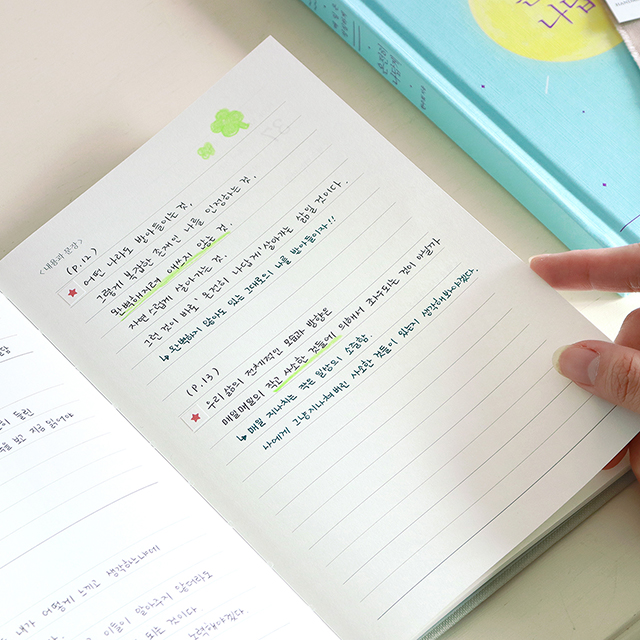 <내용과 문장>
(P.12)
★ 어떤 나라도 받아들이는 것,
그렇게 복잡한 존재인 나를 인정하는 것,
완벽해지려 애쓰지 않는 것.
자연스럽게 살아가는 것.
그런 것이 바로 온전히 나답게 살아가는 삶일 것이다.
↳ 완벽하지 않아도 있는 그대로의 나를 받아들이자!!
(P.13)
★ 우리 삶의 전체적인 모습과 방향은
매일매일의 작고 사소한 것들에 의해서 좌우되는 것이 아닐까
↳ 매일 지나치는 작은 일상의 소중함.
나에게 그냥 지나쳐버린 사소한 것들이 있는지 생각해보아야겠다.
보고 지금 읽어야
내가 어떻게 느끼고 생각하느냐에
이들이 알아주지 않더라도
되는 것이다.
노력해야겠다